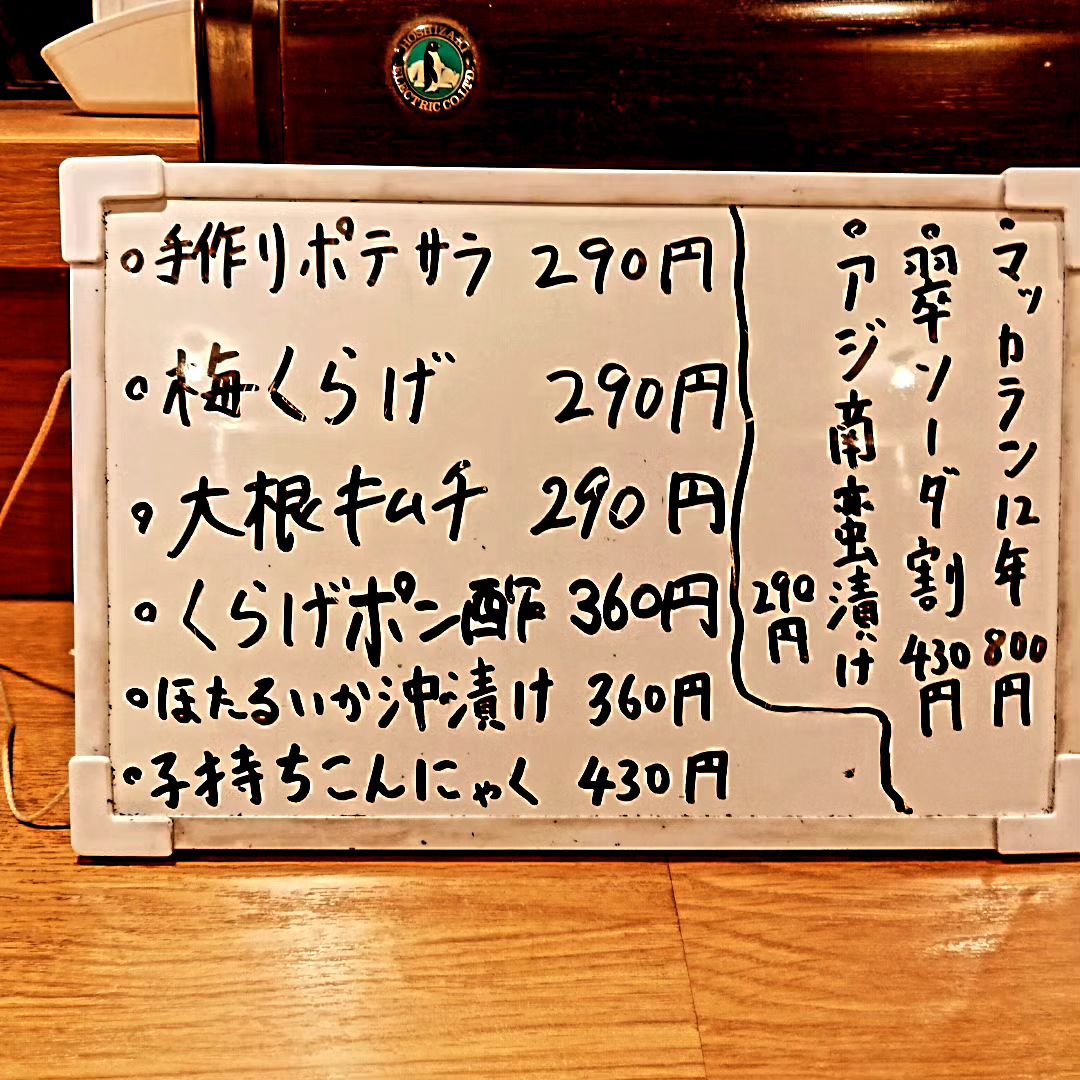 HOSHIZAKI
ELECTRIC CO.,LTD.
手作りポテサラ 290円
梅くらげ 290円
大根キムチ 290円
くらげポン酢 360円
ほたるいか沖漬け 360円
子持ちこんにゃく 430円
マッカラン12年 800円
翠ソーダ割 430円
アジ南蛮漬け 290円